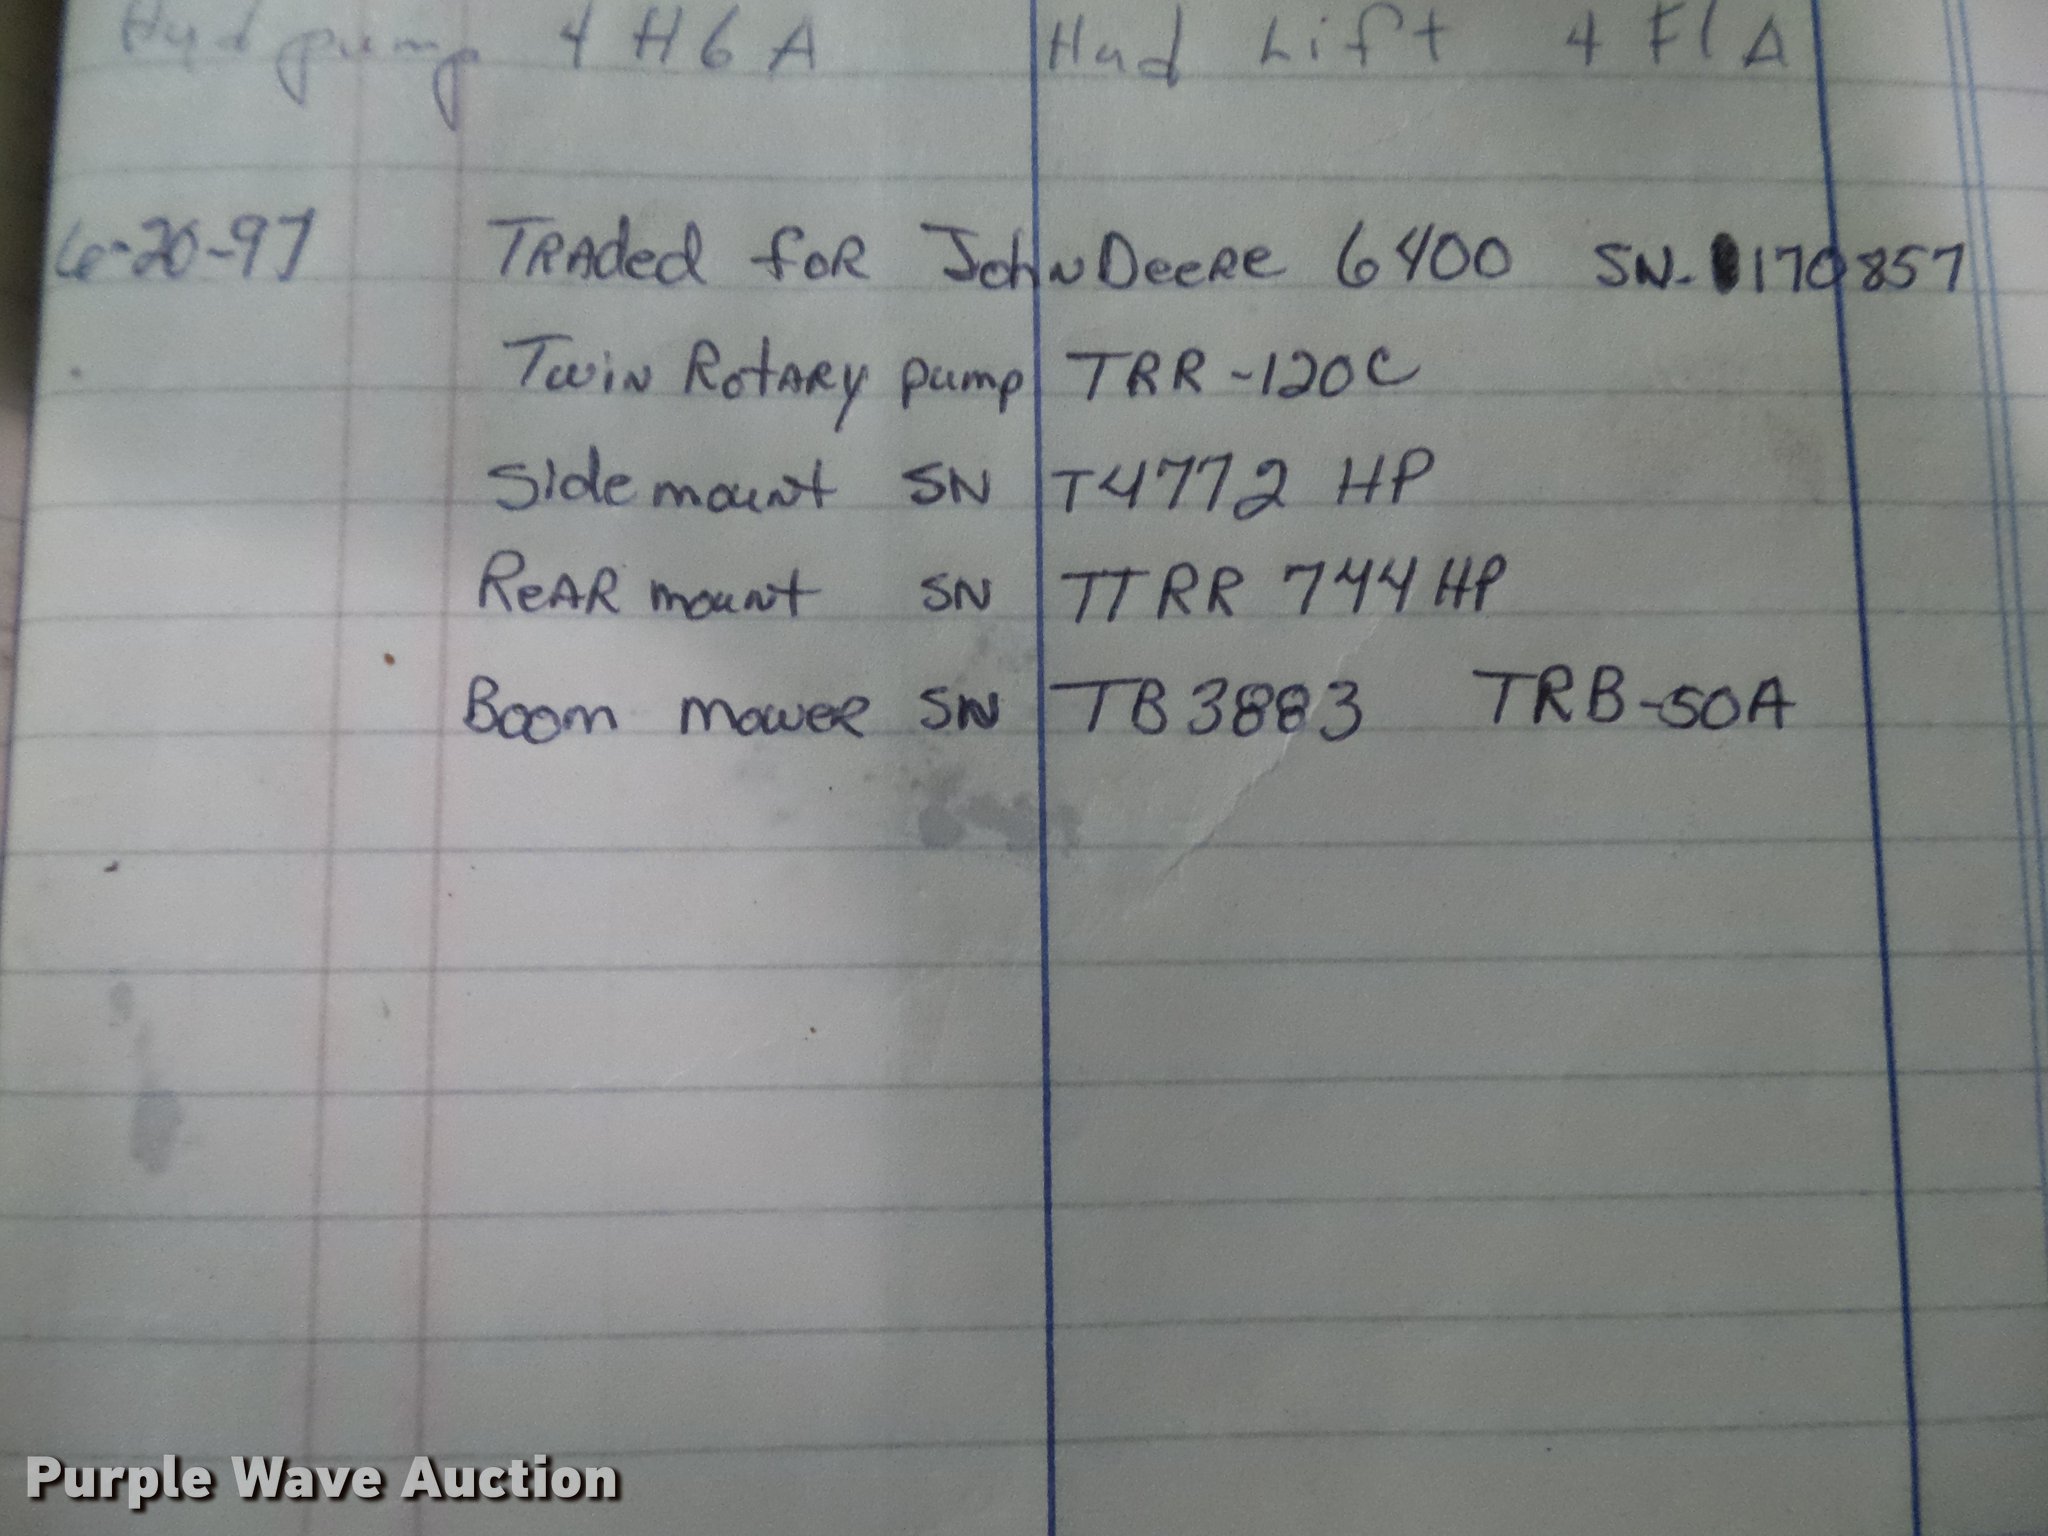 Hyd pump 4H6A Hyd Lift 4F1A
6-20-97 TRAded foR John Deere 6400 SN. 170857
Twin RotARy pump TRR-120C
Side mount SN T4772 HP
ReAR mount SN TTRR 744 HP
Boom mower SN TB3883 TRB-50A
Purple Wave Auction